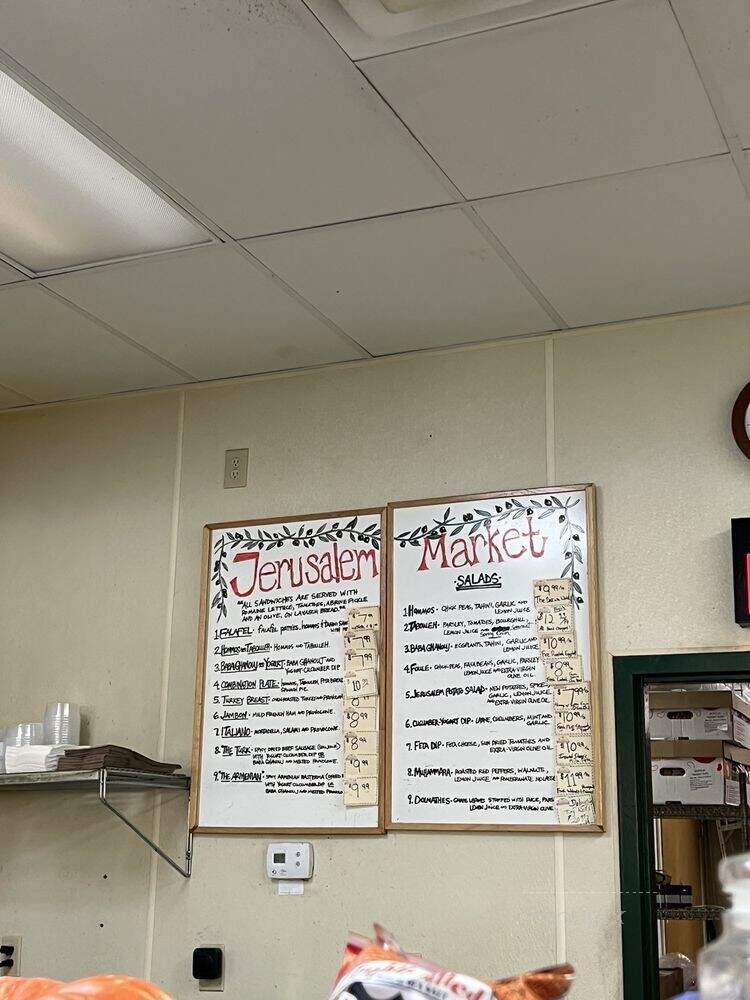 Jerusalem
"ALL SANDWICHES ARE SERVED WITH
ROMAINE LETTUCE, TOMATOES, ARMENIAN PICKLE
AND AN OLIVE, ON LAVASCH BREAD."
1. FALAFEL - FALAFEL PATTIES, HOMMOS & TAHINI
2. HOMMOS AND TABOULEH - HOMMOS AND TABULEH.
3. BABA GHANOUJ AND YOGURT - BABA GHANOUJ AND
YOGURT-CUCUMBER DIP
4. COMBINATION PLATE - HOMMOS, TABOULEH, FETA BREAD
5. TURKEY BREAST - OVEN ROASTED TURKEY AND PROVOLONE
6. JAMBON - MILD FRENCH HAM AND PROVOLONE.
7. ITALIANO - MORTADELLA, SALAMI AND PROVOLONE.
8. THE TURK - SPICY DRIED BEEF SAUSAGE
WITH YOGURT CUCUMBER DIP OR
BABA GHANOUJ AND MELTED PROVOLONE
9. "THE ARMENIAN" - SPICY ARMENIAN BASTERMA
WITH YOGURT CUCUMBER DIP OR
BABA GHANOUJ AND MELTED
$7.99
$7.99
10
$8.99
$8.99
$9.99
$9.99
Market
SALADS
1. HOMMOS - CHICK PEAS, TAHINI, GARLIC AND
LEMON JUICE
2. TABOULEH - PARSLEY, TOMATOES, BOURGHUL,
LEMON JUICE AND
3. BABA GHANOUJ - EGGPLANTS, TAHINI, GARLIC AND
LEMON JUICE.
4. FOULE - CHICK PEAS, FAVA BEANS, GARLIC, PARSLEY
LEMON JUICE AND EXTRA VIRGIN
OLIVE OIL
5. JERUSALEM POTATO SALAD - NEW POTATOES, SPICES
GARLIC, LEMON JUICE
AND EXTRA-VIRGIN OLIVE OIL
6. CUCUMBER-YOGURT DIP - LABNE, CUCUMBERS, MINT AND
GARLIC.
7. FETA DIP - FETA CHEESE, SUN DRIED TOMATOES AND
EXTRA-VIRGIN OLIVE OIL
8. MUHAMMARA - ROASTED RED PEPPERS, WALNUTS,
LEMON JUICE AND POMEGRANATE MOLASSES
9. DOLMATHES - GRAPE LEAVES STUFFED WITH RICE,
LEMON JUICE AND EXTRA-VIRGIN OLIVE
$9.99
$12
$10.99
$8.99
$7.99
$10.99
$10.99
$11.99